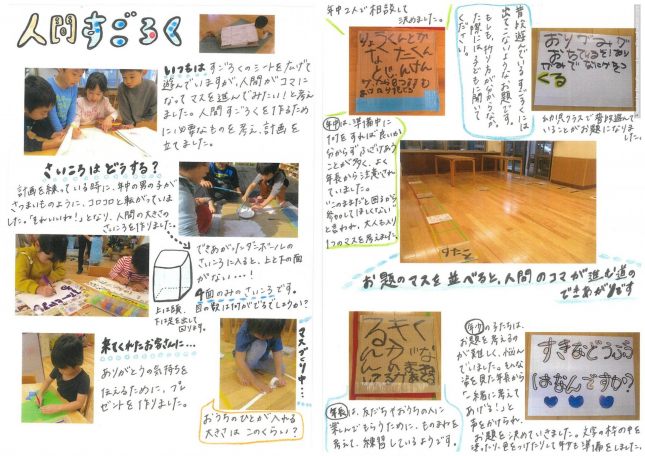 人間すごろく
いつもは すごろくのシートを広げて
遊んでいますが、人間がコマに
なってマスを進んでみたい！と考え
ました。人間すごろくを作るため
に必要なものを考え、計画を
立てました。
さいころはどうする？
計画を練っている時に、年中の男の子が
さつまいものように、コロコロと転がっていま
した。「それいいね！」となり、人間の大きさの
さいころを作りました。
できあがったダンボールの
さいころに入ると、上と下の面
がない…！
4面のみのさいころです。
目の数は何がでるでしょうか？
上は頭、
下は足を出して
回ります。
来てくれたお客さんに…
ありがとうの気持ちを
伝えるために、プレ
ゼントを作りました。
マスづくり中…
おうちのひとが入れる
大きさは このくらい？
年中2人で相談して
決めました。
昔から遊んでいるすごろくには
出てこないようなお題です。
もしも、やり方がわからなか
った際には、子どもに聞いて
ください。
おりがみが
くる
お題になりまし
た。
年中は、準備中に
何をすれば良いか
分からず、ふざけあう
ことが多く、よく
年長から注意され
ていました。
"このままだと困るから
参加してほしくない"
と言われ、大人も入り
1つのマスを考えました。
すたーと
お題のマスを並べると、人間のコマが進む道の
できあがりです
年長は、友だちやおうちの人に
楽しんでもらうために、ものまねを
考えて、練習しているようです。
年少の子たちは、
お題を考えるの
が難しく、悩ん
でいました。そんな
姿を見た年長から
「一緒に考えて
あげる！」と
声をかけられ、
お題を決めていきました。文字の枠の中を
塗ったり、色をつけたりして年少も準備をしました。
すきなどうぶつ
はなんですか？